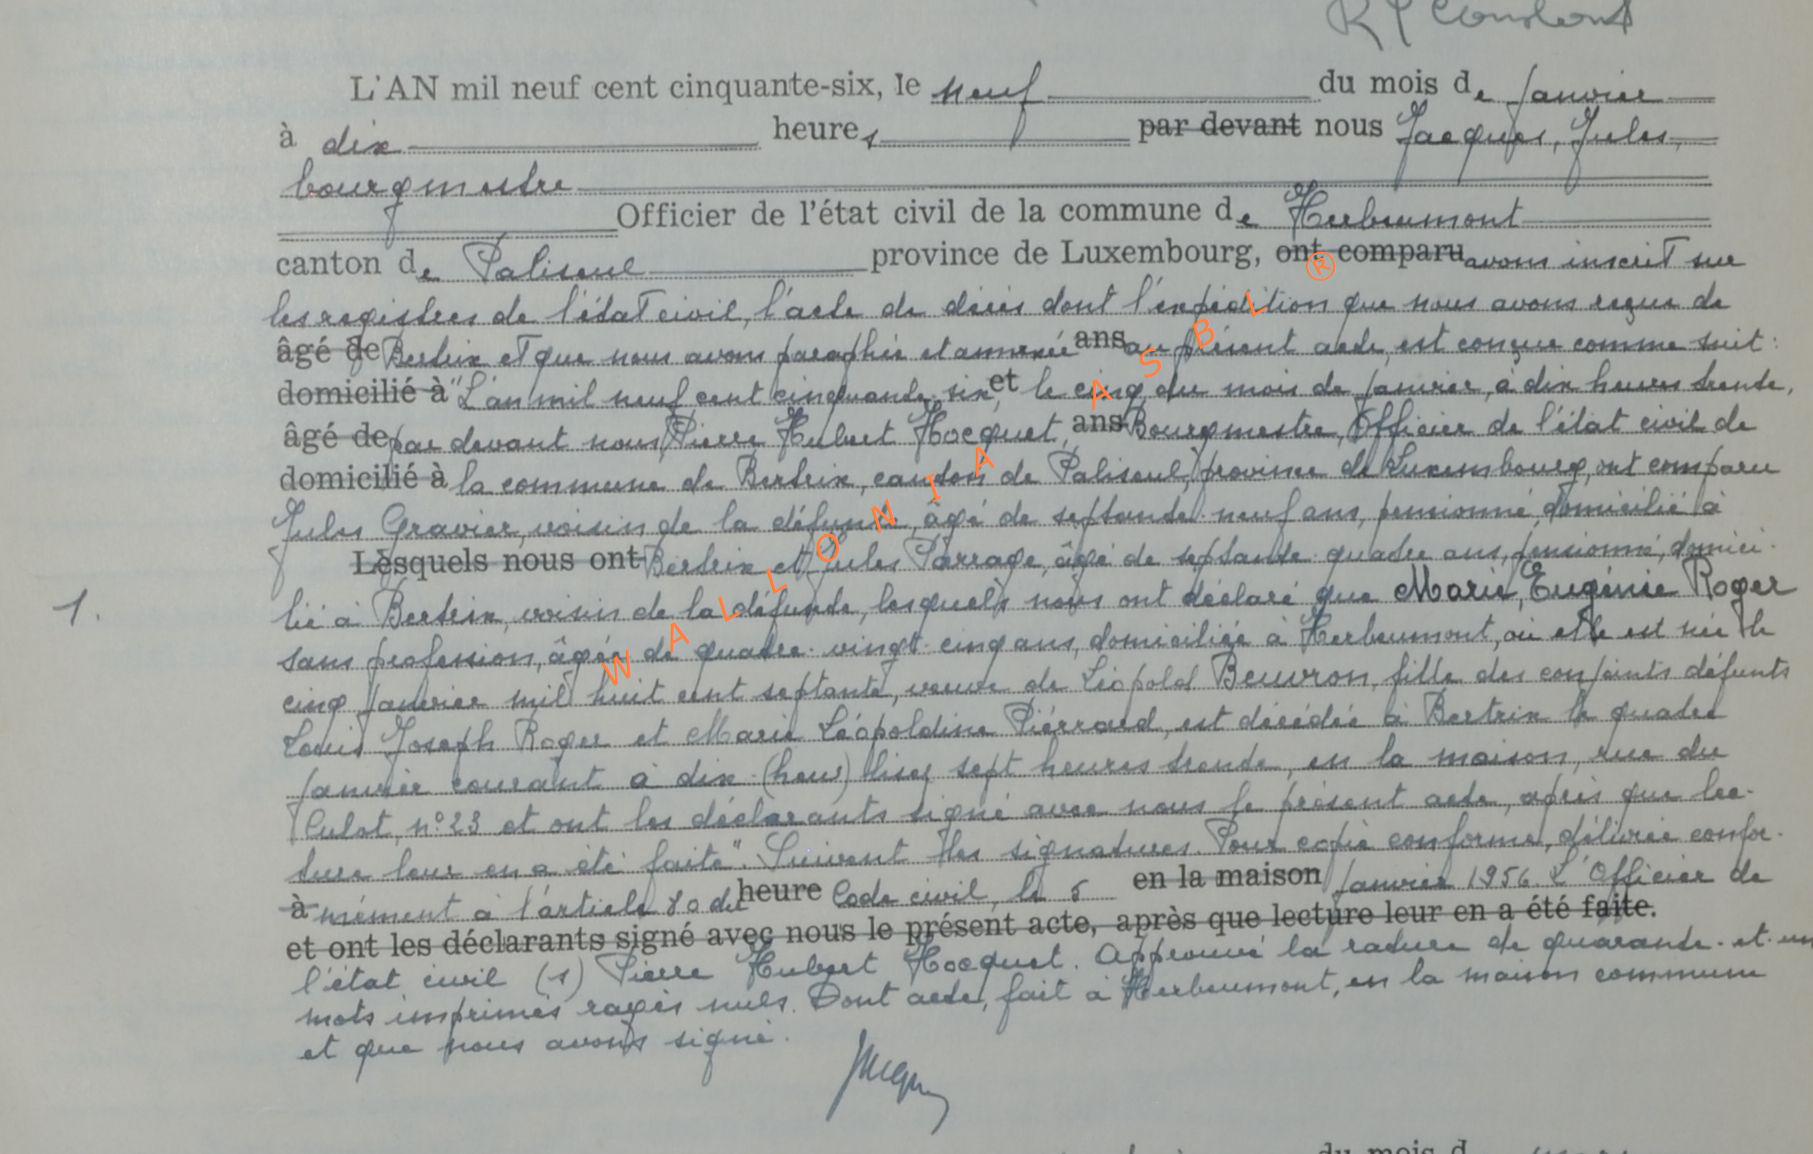 R P Constant
L'AN mil neuf cent cinquante-six, le neuf du mois de Janvier
à dix heures par devant nous Jacques, Jules,
bourgmestre
Officier de l'état civil de la commune de Herbeumont
canton de Paliseul province de Luxembourg, ont comparu avons inscrit sur
les registres de l'état civil, l'acte de décès dont l'expédition que nous avons reçue de
âgé de Bertrix et que nous avons paraphée et annexée ans au présent acte, est conçue comme suit :
domicilié à "L'an mil neuf cent cinquante-six, et le cinq du mois de janvier, à dix heures trente,
âgé de par devant nous Pierre Hubert Hocquet, ans Bourgmestre, Officier de l'état civil de
domicilié à la commune de Bertrix, canton de Paliseul, province de Luxembourg, ont comparu
Jules Gravier, voisin de la défunte, âgé de septante-neuf ans, pensionné, domicilié à
Lesquels nous ont Bertrix et Jules Parrage, âgé de septante-quatre ans, pensionné, domici-
1. lié à Bertrix, voisin de la défunte, lesquels nous ont déclaré que Marie, Eugénie Roger
sans profession, âgée de quatre-vingt-cinq ans, domiciliée à Herbeumont, où elle est née le
cinq janvier mil huit cent septante, veuve de Léopold Beuvron, fille des conjoints défunts
Louis Joseph Roger et Marie Léopoldine Piérrard, est décédée à Bertrix le quatre
janvier courant à dix (heur) lisez sept heures trente, en la maison, rue du
Culot, n° 23 et ont les déclarants signé avec nous le présent acte, après que lec-
ture leur en a été faite". Suivent les signatures. Pour copie conforme, délivrée confor-
à mément à l'article 80 du heure Code civil, le 5 en la maison janvier 1956. L'Officier de
et ont les déclarants signé avec nous le présent acte, après que lecture leur en a été faite.
l'état civil (s) Pierre Hubert Hocquet. Approuvé la rature de quarante-et-un
mots imprimés rayés nuls. Dont acte, fait à Herbeumont, en la maison commune
et que nous avons signé.
Jacques
WALLONIA ASBL ®
du mois d